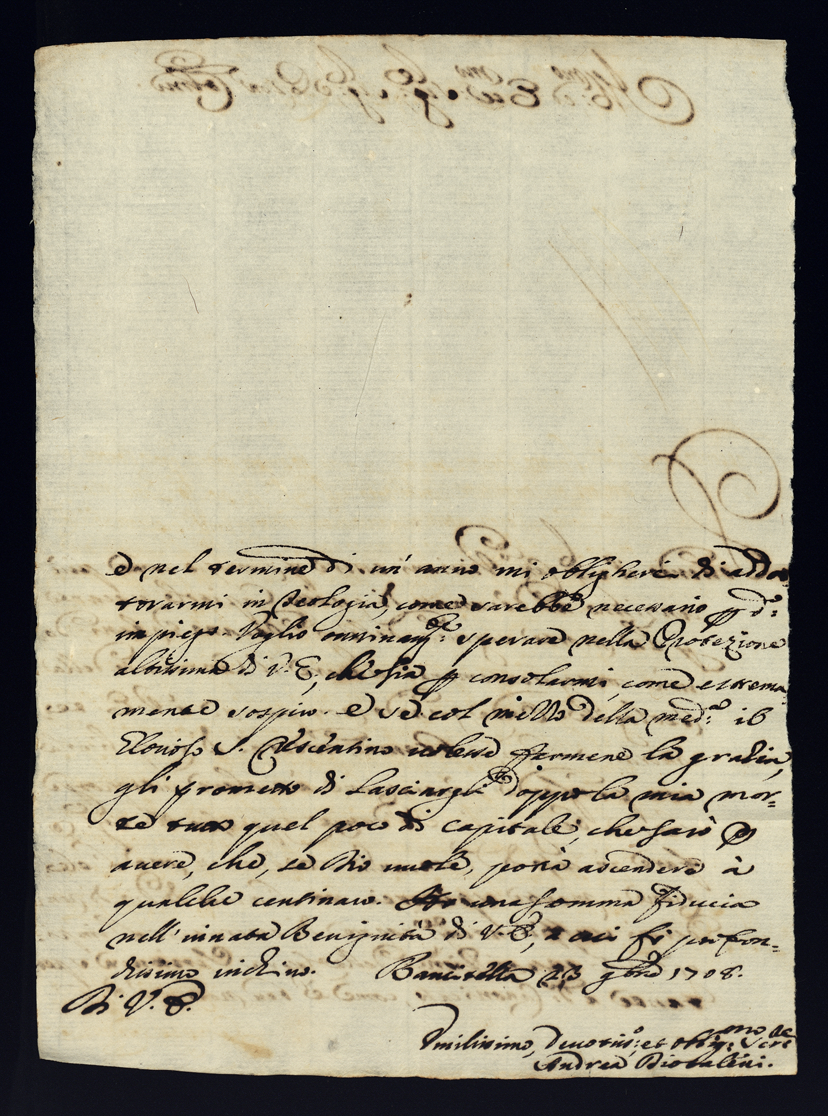 e nel termine di un' anno mi obligherei di addot
torarmi in Teologia, come sarebbe necessario p d.º
impiego. Voglio onninam.te sperare nella Protezione
altissima di V. E., che sia p consolarmi, come estrema
mente sospiro. E se col mezzo della med.ª il
Glorioso S. volesse farmene la grazia,
gli prometto di lasciargli doppo la mia mor=
te tutto quel poco di capitale, che sarò p
avere, che, se Dio vuole, potrà ascendere à
qualche centinaro. Ho una somma fiducia
nell' innata Benignità di V. E., a cui fò profon=
dissimo inchino. 23 9bre 1708.
Di V. E.
Umilissimo, Devotiss.º et Oblig.mo Ser.re
Andrea